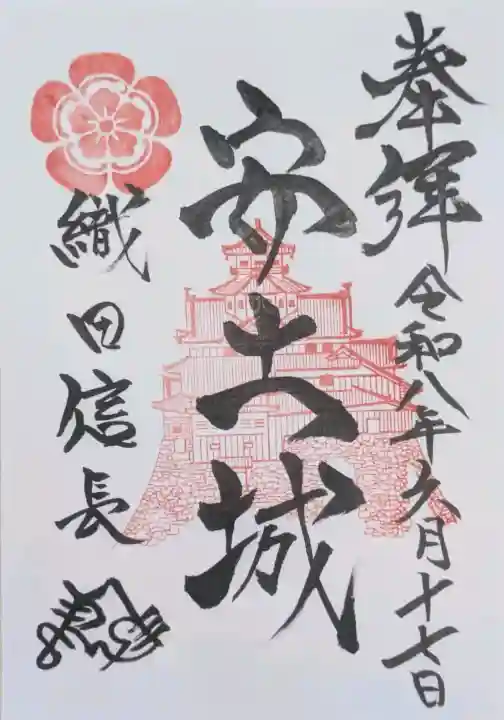 奉拝 令和八年六月十七日
安土城
織田信長